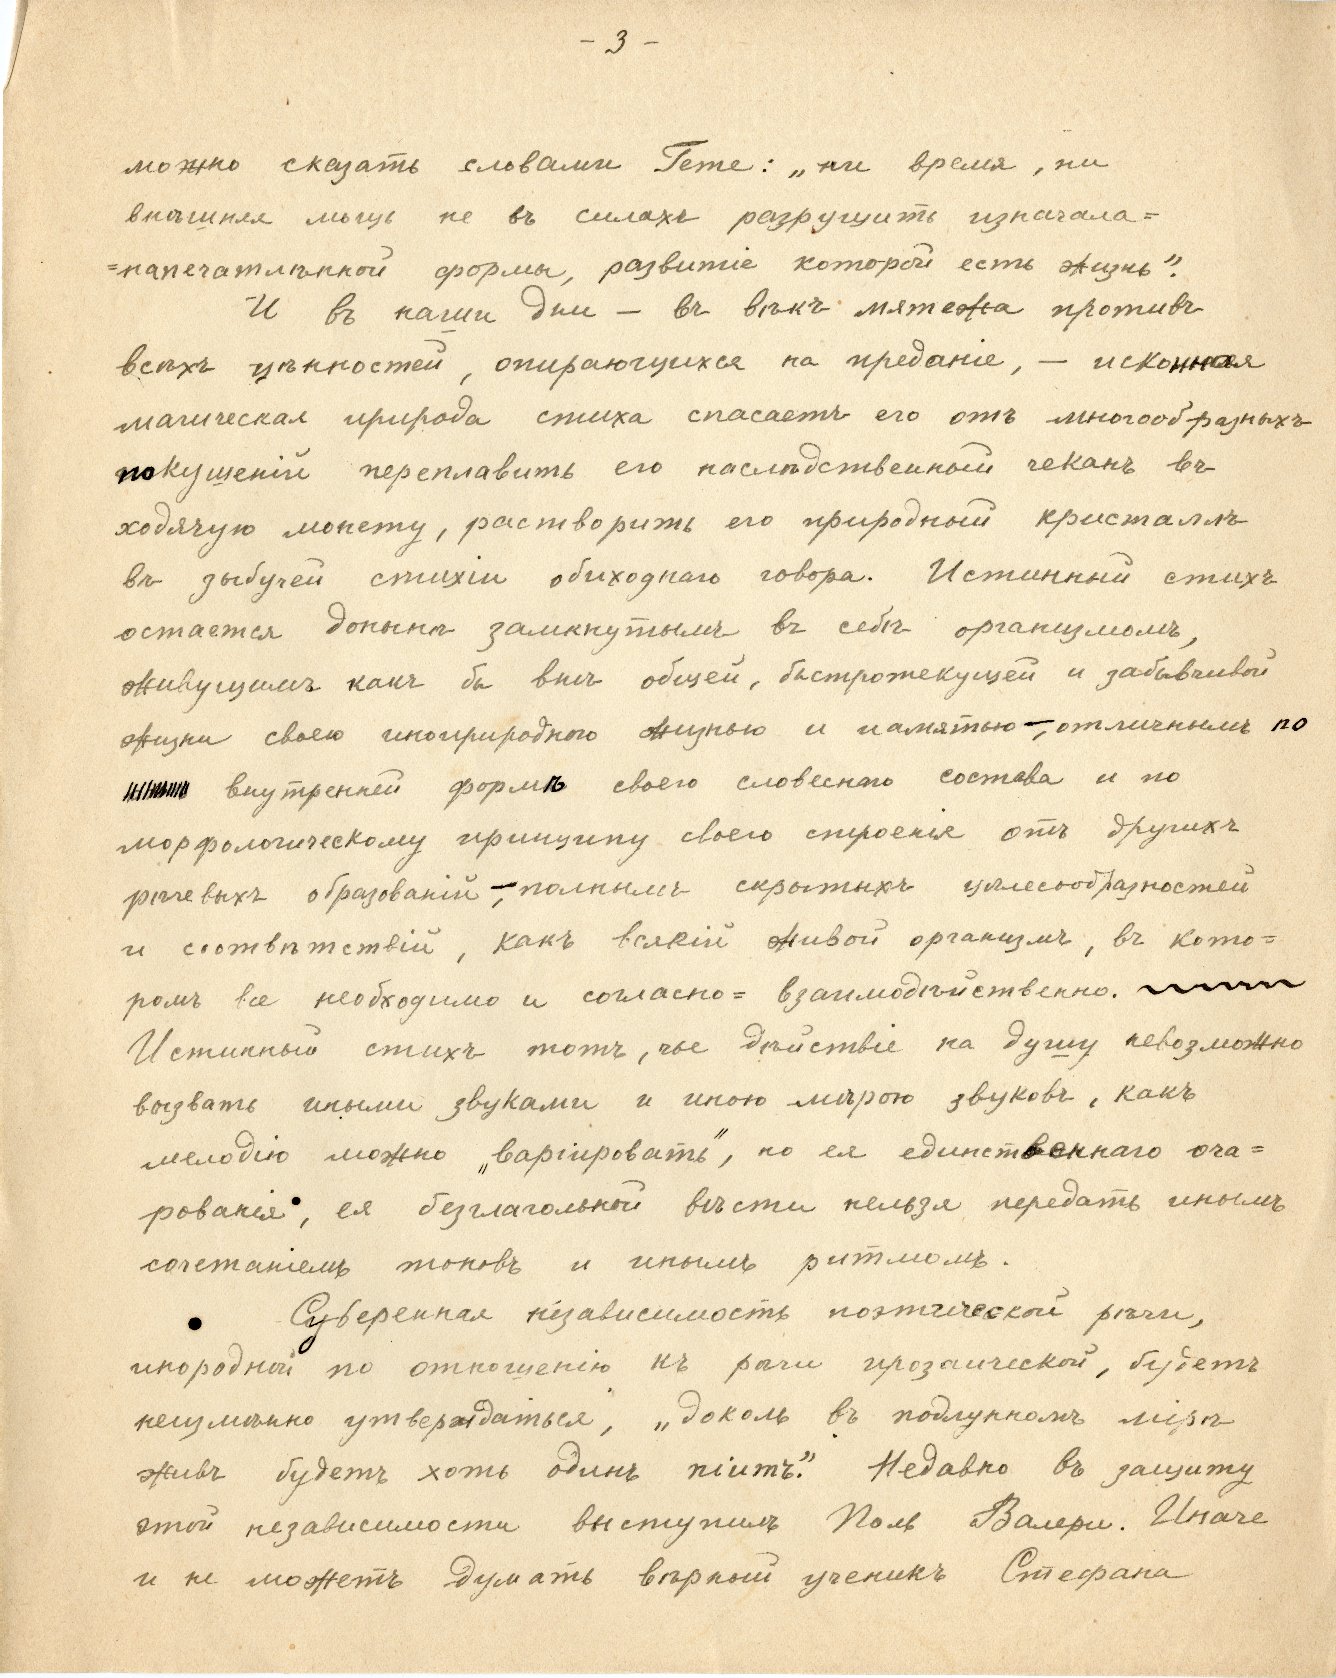 - 3 -
можно сказать словами Гете: „ни время, ни
внѣшняя мощь не въ силахъ разрушить изначала=
=напечатлѣнной формы, развитіе которой есть жизнь".
И въ наши дни — въ вѣкъ мятежа противъ
всѣхъ цѣнностей, опирающихся на преданіе, — исконная
магическая природа стиха спасаетъ его отъ многообразныхъ
покушеній переплавить его наслѣдственный чеканъ въ
ходячую монету, растворить его природный кристаллъ
въ зыбучей стихіи обиходнаго говора. Истинный стихъ
остается донынѣ замкнутымъ въ себѣ организмомъ,
живущимъ какъ бы внѣ общей, быстротекущей и забывчивой
жизни своею иноприродною жизнью и памятью —, отличнымъ по
внутренней формѣ своего словеснаго состава и по
морфологическому принципу своего строенія отъ другихъ
рѣчевыхъ образованій —, полнымъ скрытыхъ цѣлесообразностей
и соотвѣтствій, какъ всякій живой организмъ, въ кото=
ромъ все необходимо и согласно= взаимодѣйственно.
Истинный стихъ тотъ, чье дѣйствіе на душу невозможно
вызвать иными звуками и иною мѣрою звуковъ, какъ
мелодію можно „варіировать", но ея единственнаго оча=
рованія, ея безглагольной вѣсти нельзя передать инымъ
сочетаніемъ тоновъ и инымъ ритмомъ.
Суверенная независимость поэтической рѣчи,
инородной по отношенію къ рѣчи прозаической, будетъ
неизмѣнно утверждаться, „доколь въ подлунномъ мірѣ
живъ будетъ хоть одинъ піитъ." Недавно въ защиту
этой независимости выступилъ Поль Валери. Иначе
и не можетъ думать вѣрный ученикъ Стефана